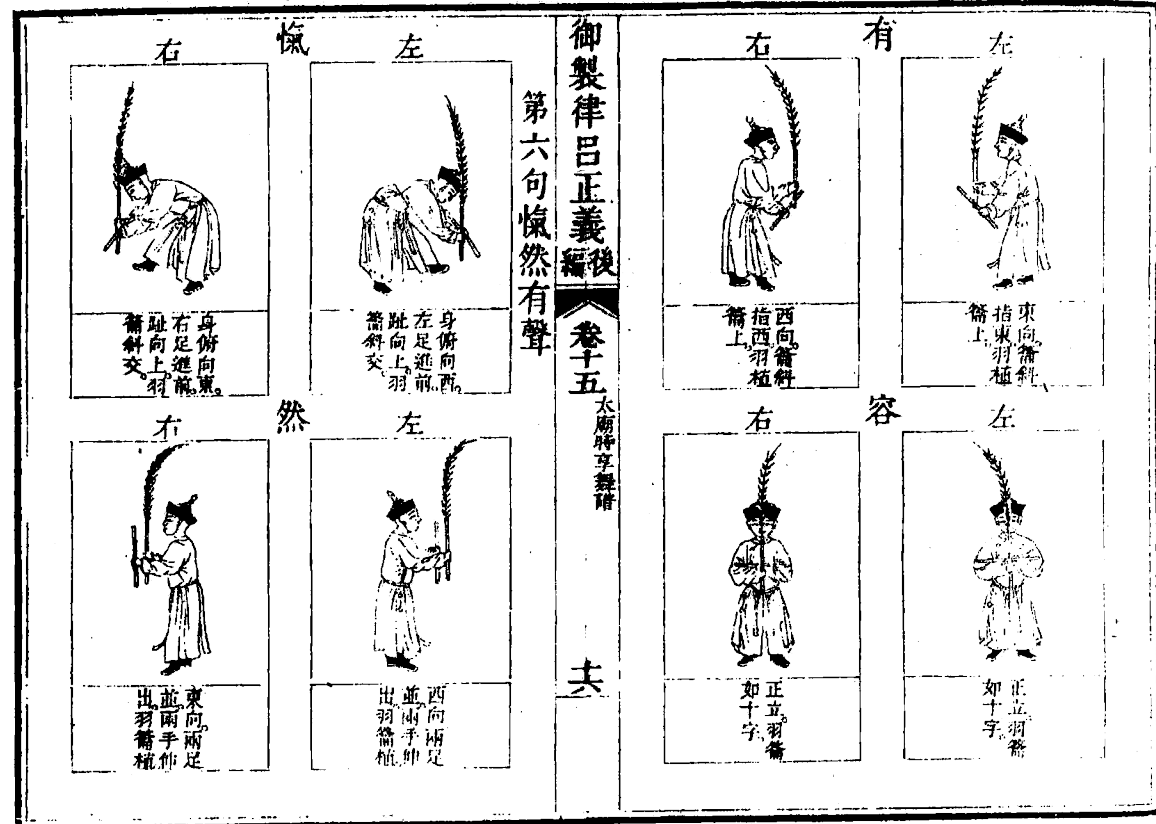 有
左
東向。籥斜
指東羽植
籥上。
右
西向。籥斜
指西羽植
籥上。
容
左
正立。羽籥
如十字。
右
正立。羽籥
如十字。
御製律呂正義後編
卷十五
太廟時享舞譜
十六
第六句愾然有聲
愾
左
身俯向西。
左足進前。
趾向上。羽
籥斜交。
右
身俯向東。
右足進前。
趾向上。羽
籥斜交。
然
左
西向兩足
並。兩手伸
出。羽籥植
右
東向。兩足
並。兩手伸
出。羽籥植